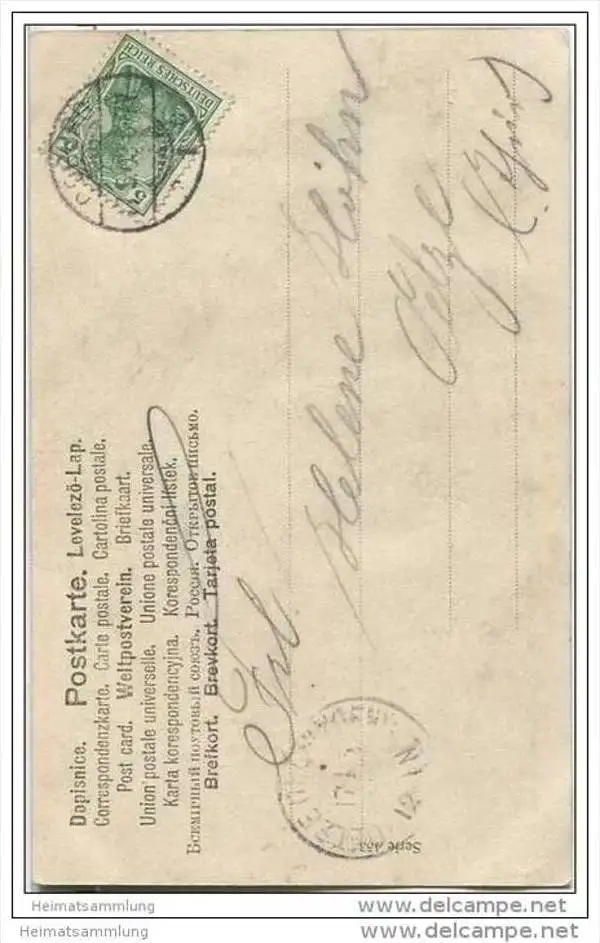 Dopisnice. Postkarte. Levelező-Lap.
Correspondenzkarte. Carte postale. Cartolina postale.
Post card. Weltpostverein. Briefkaart.
Union postale universelle. Unione postale universale.
Karta korespondencyjna. Korespondenční lístek.
Всемірный почтовый союзъ. Россія. Открытое письмо.
Brefkort. Brevkort. Tarjeta postal.
DEUTSCHES REICH
5
Frl.
Helene Höhn
Oelze
(Thür.)
Serie
Heimatsammlung
Heimatsammlung
www.delcampe.net
www.delcampe.net